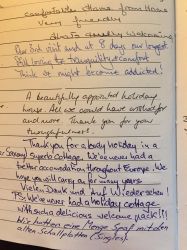 comfortable Home from Home
very friendly
always welcoming
Our 3rd visit and at 8 days our longest
Still loving the tranquility & comfort
Think it might become addicted!
A beautifully appointed holiday
house. All we could have wished for
and more. Thank you for your
thoughtfulness.
Thank you for a lovely holiday in a
Superb Cottage. We've never had a
better accomodation throughout Europe. We
hope you enjoy for many years.
Vielen Dank und Auf Wiedersehen
PS: We've never had a holiday cottage
with such a delicious welcome pack!!!
Wir hatten eine Menge Spaß mit den
alten Schallplatten (Singles).